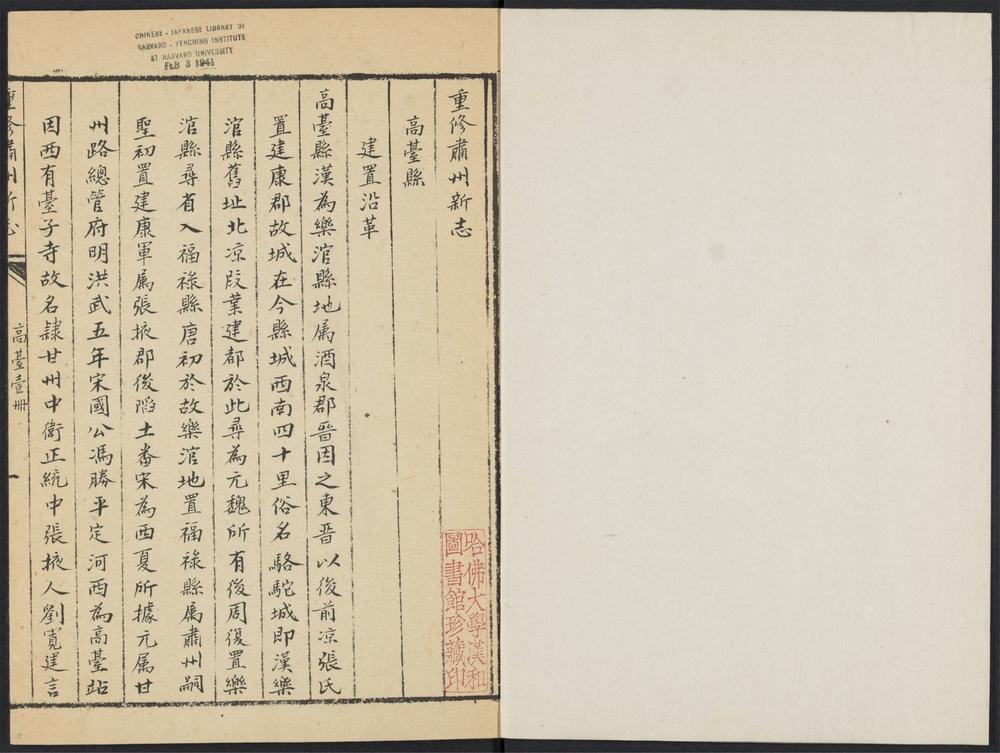 CHINESE - JAPANESE LIBRARY OF
HARVARD - YENCHING INSTITUTE
AT HARVARD UNIVERSITY
FEB 3 1941
重修肅州新志
高臺縣
建置沿革
高臺縣漢為樂涫縣地属酒泉郡晉因之東晉以後前凉張氏
置建康郡故城在今縣城西南四十里俗名駱駝城即漢樂
涫縣舊址北凉段業建都於此尋為元魏所有後周復置樂
涫縣尋省入福祿縣唐初於故樂涫地置福祿縣属肅州嗣
聖初置建康軍属張掖郡後陷土番宋為西夏所據元属甘
州路總管府明洪武五年宋國公馮勝平定河西為高臺站
因西有臺子寺故名隸甘州中衛正統中張掖人劉寬建言
重修肅州新志
高臺壹冊
一
哈佛大學漢和
圖書館珍藏印